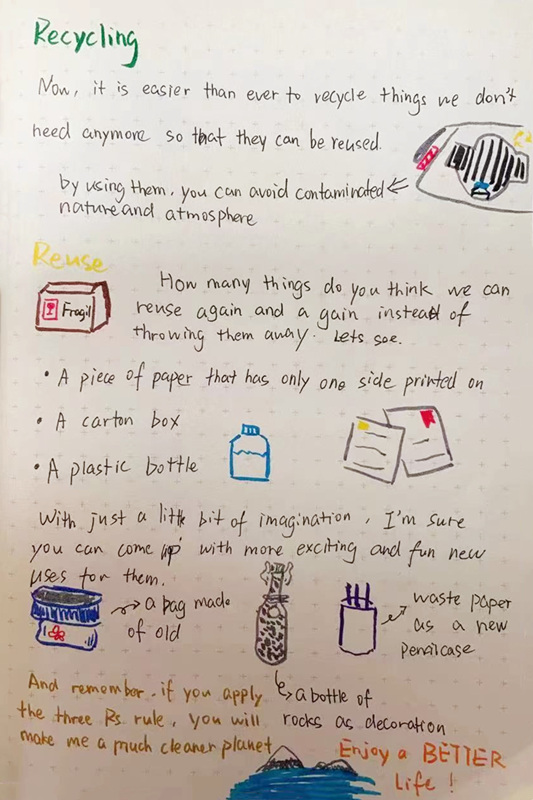 Recycling
Now, it is easier than ever to recycle things we don't
need anymore so that they can be reused.
by using them, you can avoid contaminated
nature and atmosphere
Reuse
Fragil
How many things do you think we can
reuse again and a gain instead of
throwing them away. Lets see.
• A piece of paper that has only one side printed on
• A carton box
• A plastic bottle
With just a little bit of imagination, I'm sure
you can come up with more exciting and fun new
uses for them.
a bag made
of old
waste paper
as a new
pencilcase
a bottle of
rocks as decoration
And remember. if you apply
the three Rs rule, you will
make me a much cleaner planet
Enjoy a BETTER
Life!